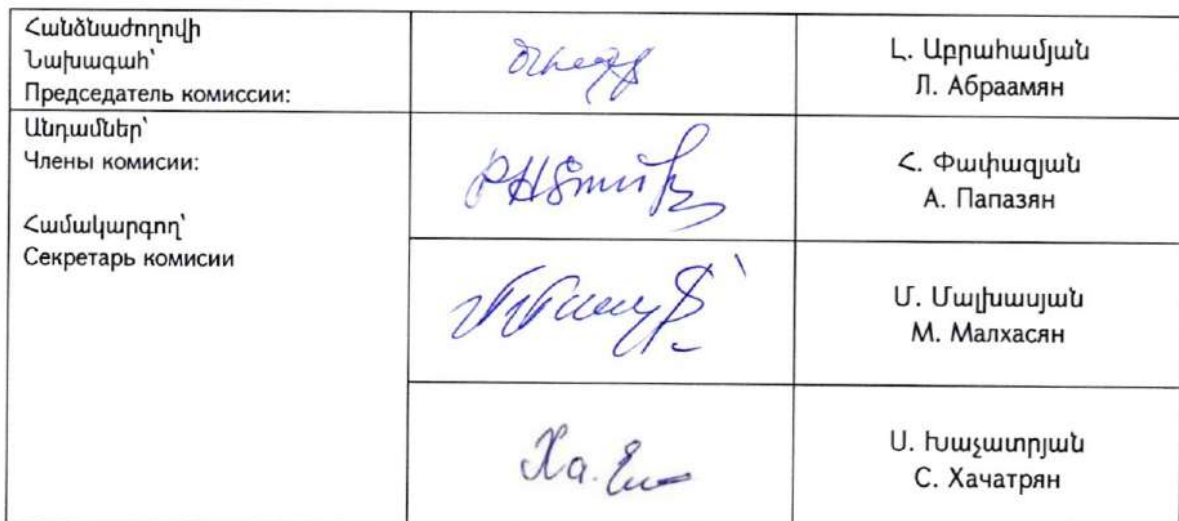 Հանձնաժողովի
Նախագահ՝
Председатель комиссии:
Լ. Աբրահամյան
Л. Абраамян
Անդամներ՝
Члены комисии:
Համակարգող՝
Секретарь комисии
Հ. Փափազյան
А. Папазян
Մ. Մալխասյան
М. Малхасян
Ս. Խաչատրյան
С. Хачатрян